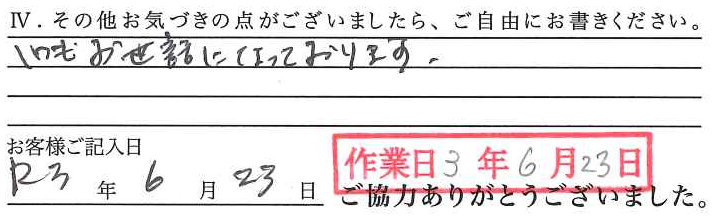 Ⅳ．その他お気づきの点がございましたら、ご自由にお書きください。
いつもお世話になっております。
お客様ご記入日
R3年6月23日
作業日3年6月23日
ご協力ありがとうございました。